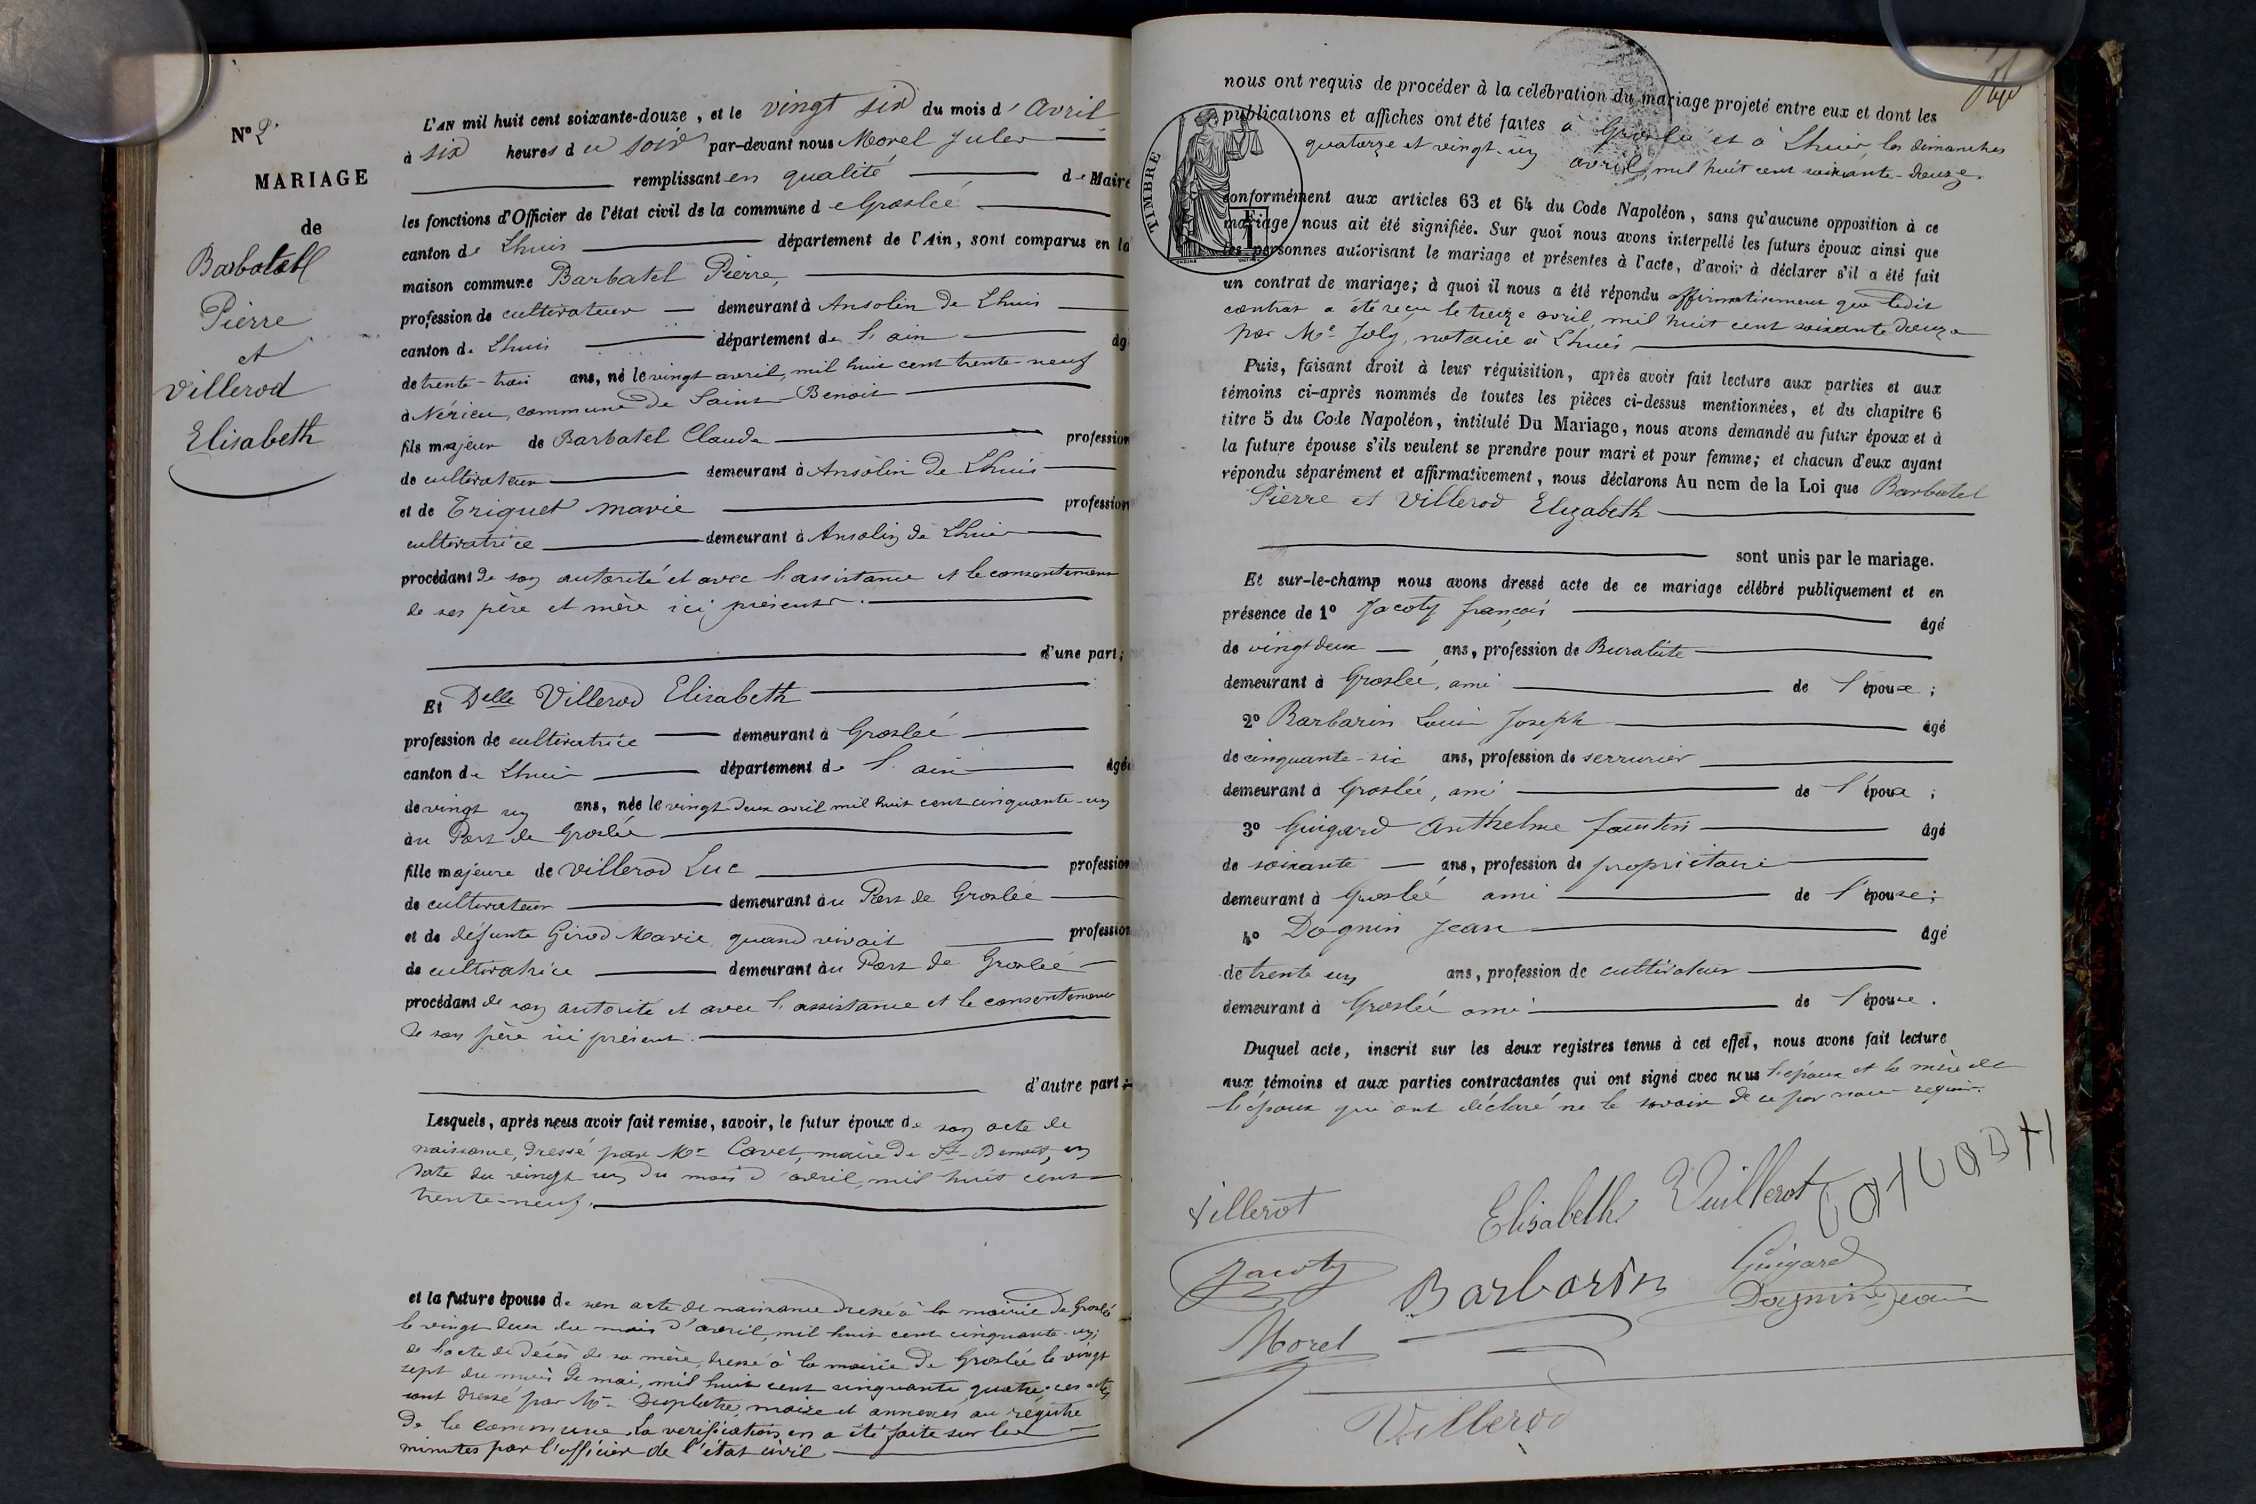 N° 2
MARIAGE
de
Barbatel
Pierre
et
Villerod
Elisabeth
L'AN mil huit cent soixante-douze, et le vingt six du mois d'avril
à six heures du soir par-devant nous Morel Jules
remplissant en qualité de Maire
les fonctions d'Officier de l'état civil de la commune de Groslée
canton de Lhuis département de l'Ain, sont comparus en la
maison commune Barbatel Pierre,
profession de cultivateur demeurant à Ansolin de Lhuis
canton de Lhuis département de l'ain âg
de trente-trois ans, né le vingt avril, mil huit cent trente-neuf
à Nérieu, commune de Saint-Benoit
fils majeur de Barbatel Claude profession
de cultivateur demeurant à Ansolin de Lhuis
et de Triquet marie profession
cultivatrice demeurant à Ansolin de Lhuis
procédant de son autorité et avec l'assistance et le consentement
de ses père et mère ici présents.
d'une part;
Et Delle Villerod Elisabeth
profession de cultivatrice demeurant à Groslée
canton de Lhuis département de l'ain âgée
de vingt un ans, née le vingt deux avril mil huit cent cinquante-un
au Port de Groslée
fille majeure de Villerod Luc profession
de cultivateur demeurant au Port de Groslée
et de défunte Girod Marie, quand vivait profession
de cultivatrice demeurant au Port de Groslée
procédant de son autorité et avec l'assistance et le consentement
de son père ici présent.
d'autre part;
Lesquels, après nous avoir fait remise, savoir, le futur époux de son acte de
naissance, dressé par Mr Cavet, maire de St-Benoit, en
date du vingt un du mois d'avril, mil huit cent
trente-neuf.
et la future épouse de son acte de naissance dressé à la mairie de Groslée
le vingt deux du mois d'avril, mil huit cent cinquante-un;
de l'acte de décès de sa mère, dressé à la mairie de Groslée le vingt
sept du mois de mai, mil huit cent cinquante quatre; ces actes
sont dressé par Mr maire et annexés au régistre
de la commune. La verification en a été faite sur les
minutes par l'officier de l'état civil
nous ont requis de procéder à la célébration du mariage projeté entre eux et dont les
publications et affiches ont été faites à Groslée et à Lhuis, les dimanches
quatorze et vingt-un avril, mil huit cent soixante-douze
TIMBRE
1 F
conformément aux articles 63 et 64 du Code Napoléon, sans qu'aucune opposition à ce
mariage nous ait été signifiée. Sur quoi nous avons interpellé les futurs époux ainsi que
les personnes autorisant le mariage et présentes à l'acte, d'avoir à déclarer s'il a été fait
un contrat de mariage; à quoi il nous a été répondu affirmativement que ledit
contrat a été reçu le treize avril, mil huit cent soixante douze
par Me Joly, notaire à Lhuis
Puis, faisant droit à leur réquisition, après avoir fait lecture aux parties et aux
témoins ci-après nommés de toutes les pièces ci-dessus mentionnées, et du chapitre 6
titre 5 du Code Napoléon, intitulé Du Mariage, nous avons demandé au futur époux et à
la future épouse s'ils veulent se prendre pour mari et pour femme; et chacun d'eux ayant
répondu séparément et affirmativement, nous déclarons Au nom de la Loi que Barbatel
Pierre et Villerod Elizabeth
sont unis par le mariage.
Et sur-le-champ nous avons dressé acte de ce mariage célébré publiquement et en
présence de 1° Jacoty françois âgé
de vingt deux ans, profession de Buraliste
demeurant à Groslée, ami de l'époux;
2° Barbarin Louis Joseph âgé
de cinquante-six ans, profession de serrurier
demeurant à Groslée, ami de l'époux;
3° Guigard Anthelme faustin âgé
de soixante ans, profession de propriétaire
demeurant à Groslée ami de l'épouse;
4° Dognin Jean âgé
de trente un ans, profession de cultivateur
demeurant à Groslée ami de l'épouse.
Duquel acte, inscrit sur les deux registres tenus à cet effet, nous avons fait lecture
aux témoins et aux parties contractantes qui ont signé avec nous l'époux et la mère de
l'époux qui ont déclaré ne le savoir de ce par nous requis.
Villerot
Elisabeth Vuillerot
Jacoty
Barbarin
Guigard
Dognin Jean
Morel
Villerod